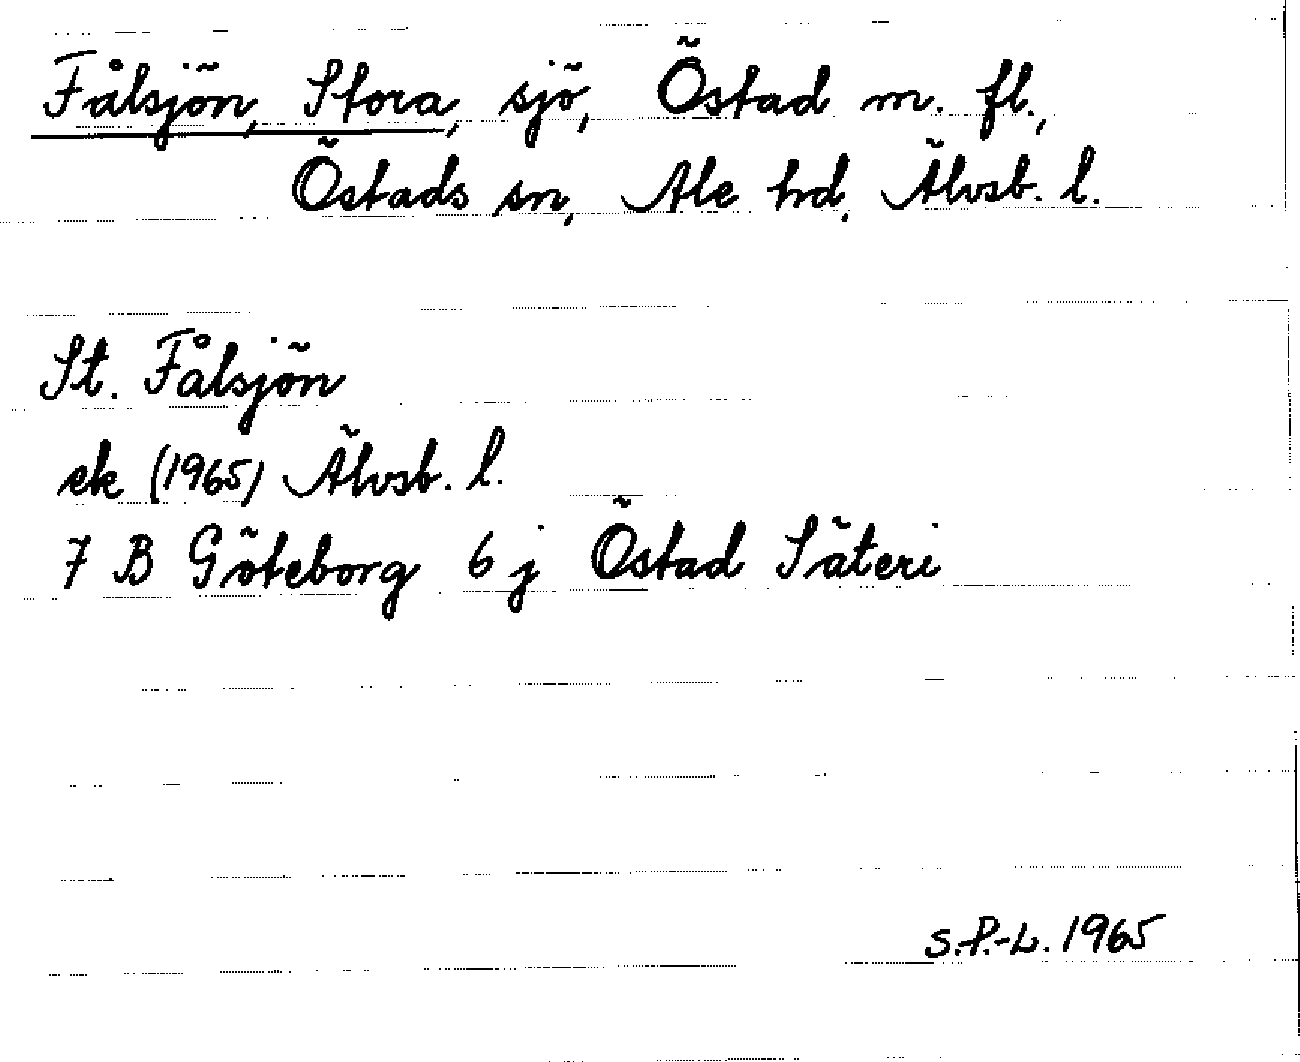 Fålsjön, Stora, sjö, Östad m. fl.,
Östads sn, Ale hd, Älvsb. l.
St. Fålsjön
ek (1965) Älvsb. l.
7 B Göteborg 6 j Östad Säteri
S.P.-L. 1965